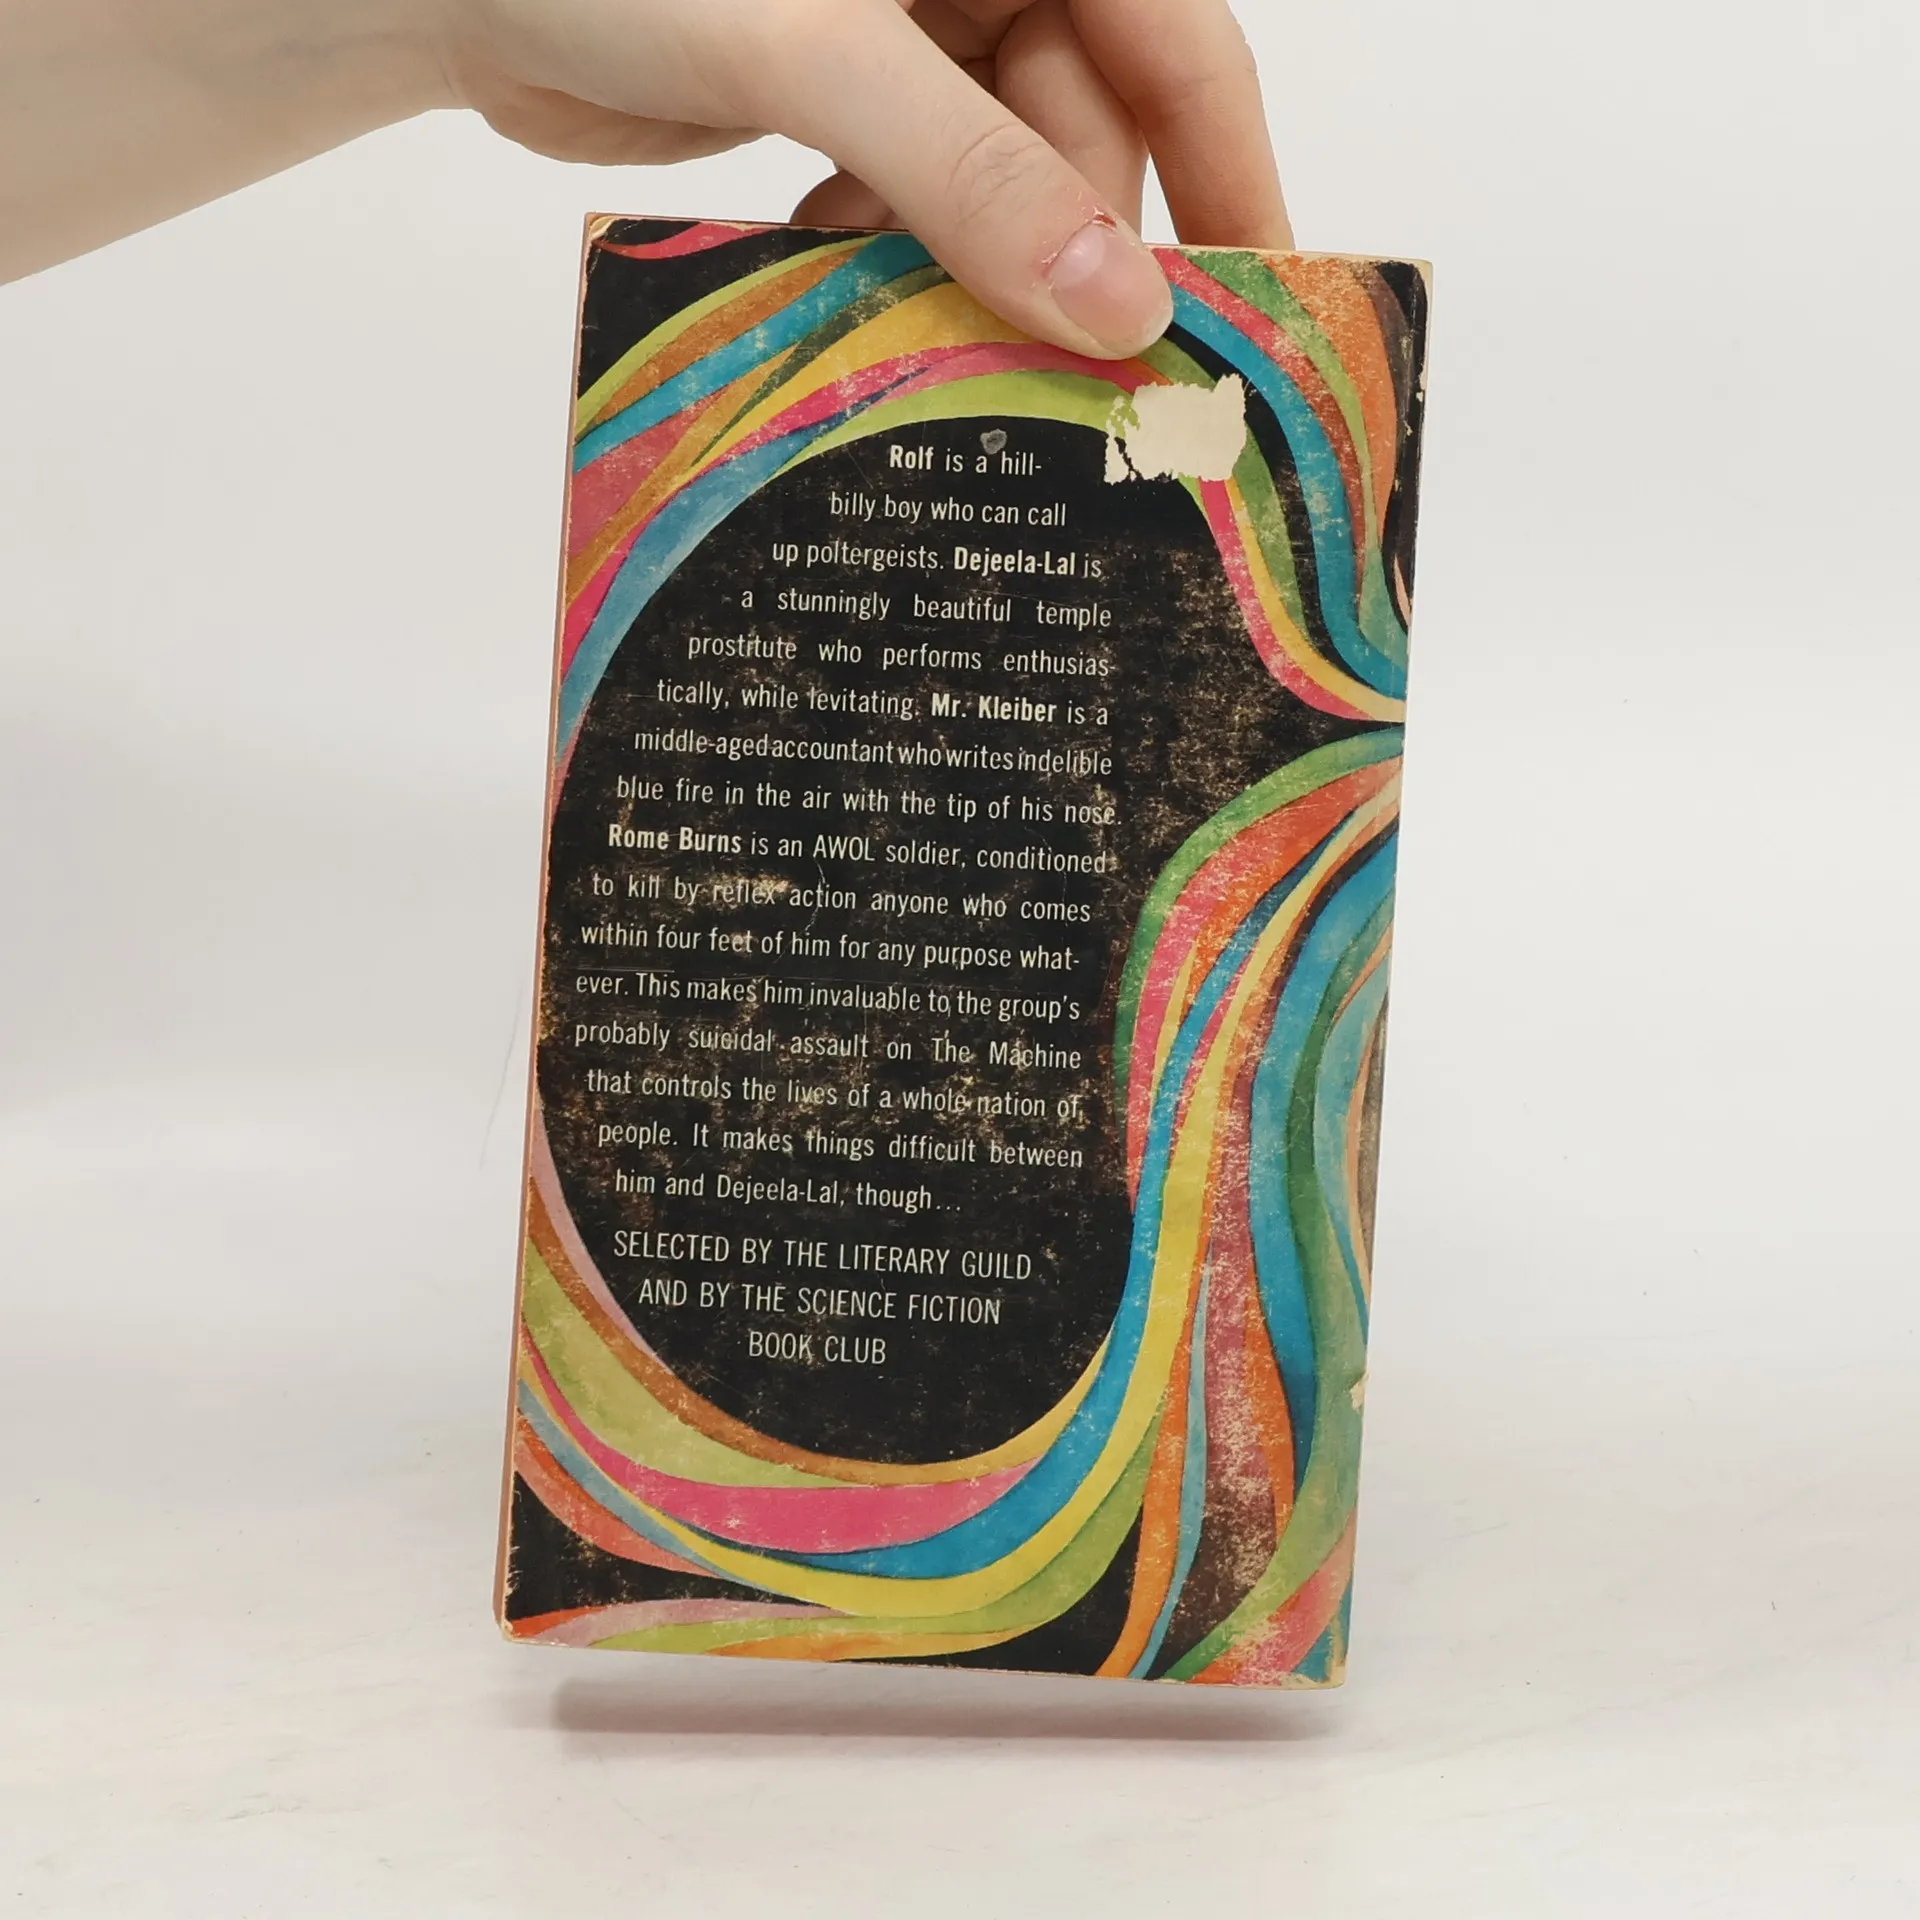 Rolf is a hill-
billy boy who can call
up poltergeists. Dejeela-Lal is
a stunningly beautiful temple
prostitute who performs enthusias-
tically, while levitating. Mr. Kleiber is a
middle-aged accountant who writes indelible
blue fire in the air with the tip of his nose.
Rome Burns is an AWOL soldier, conditioned
to kill by reflex action anyone who comes
within four feet of him for any purpose what-
ever. This makes him invaluable to the group's
probably suicidal assault on The Machine
that controls the lives of a whole nation of
people. It makes things difficult between
him and Dejeela-Lal, though...
SELECTED BY THE LITERARY GUILD
AND BY THE SCIENCE FICTION
BOOK CLUB